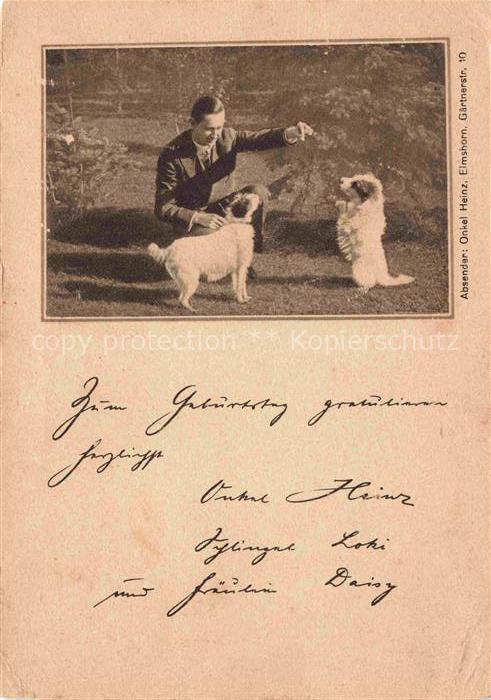 Absender: Onkel Heinz, Elmshorn, Gärtnerstr. 10
copy protection ** Kopierschutz
Zum Geburtstag gratulieren
herzlichst
Onkel Heinz
Schlingel Loki
und Fräulein Daisy